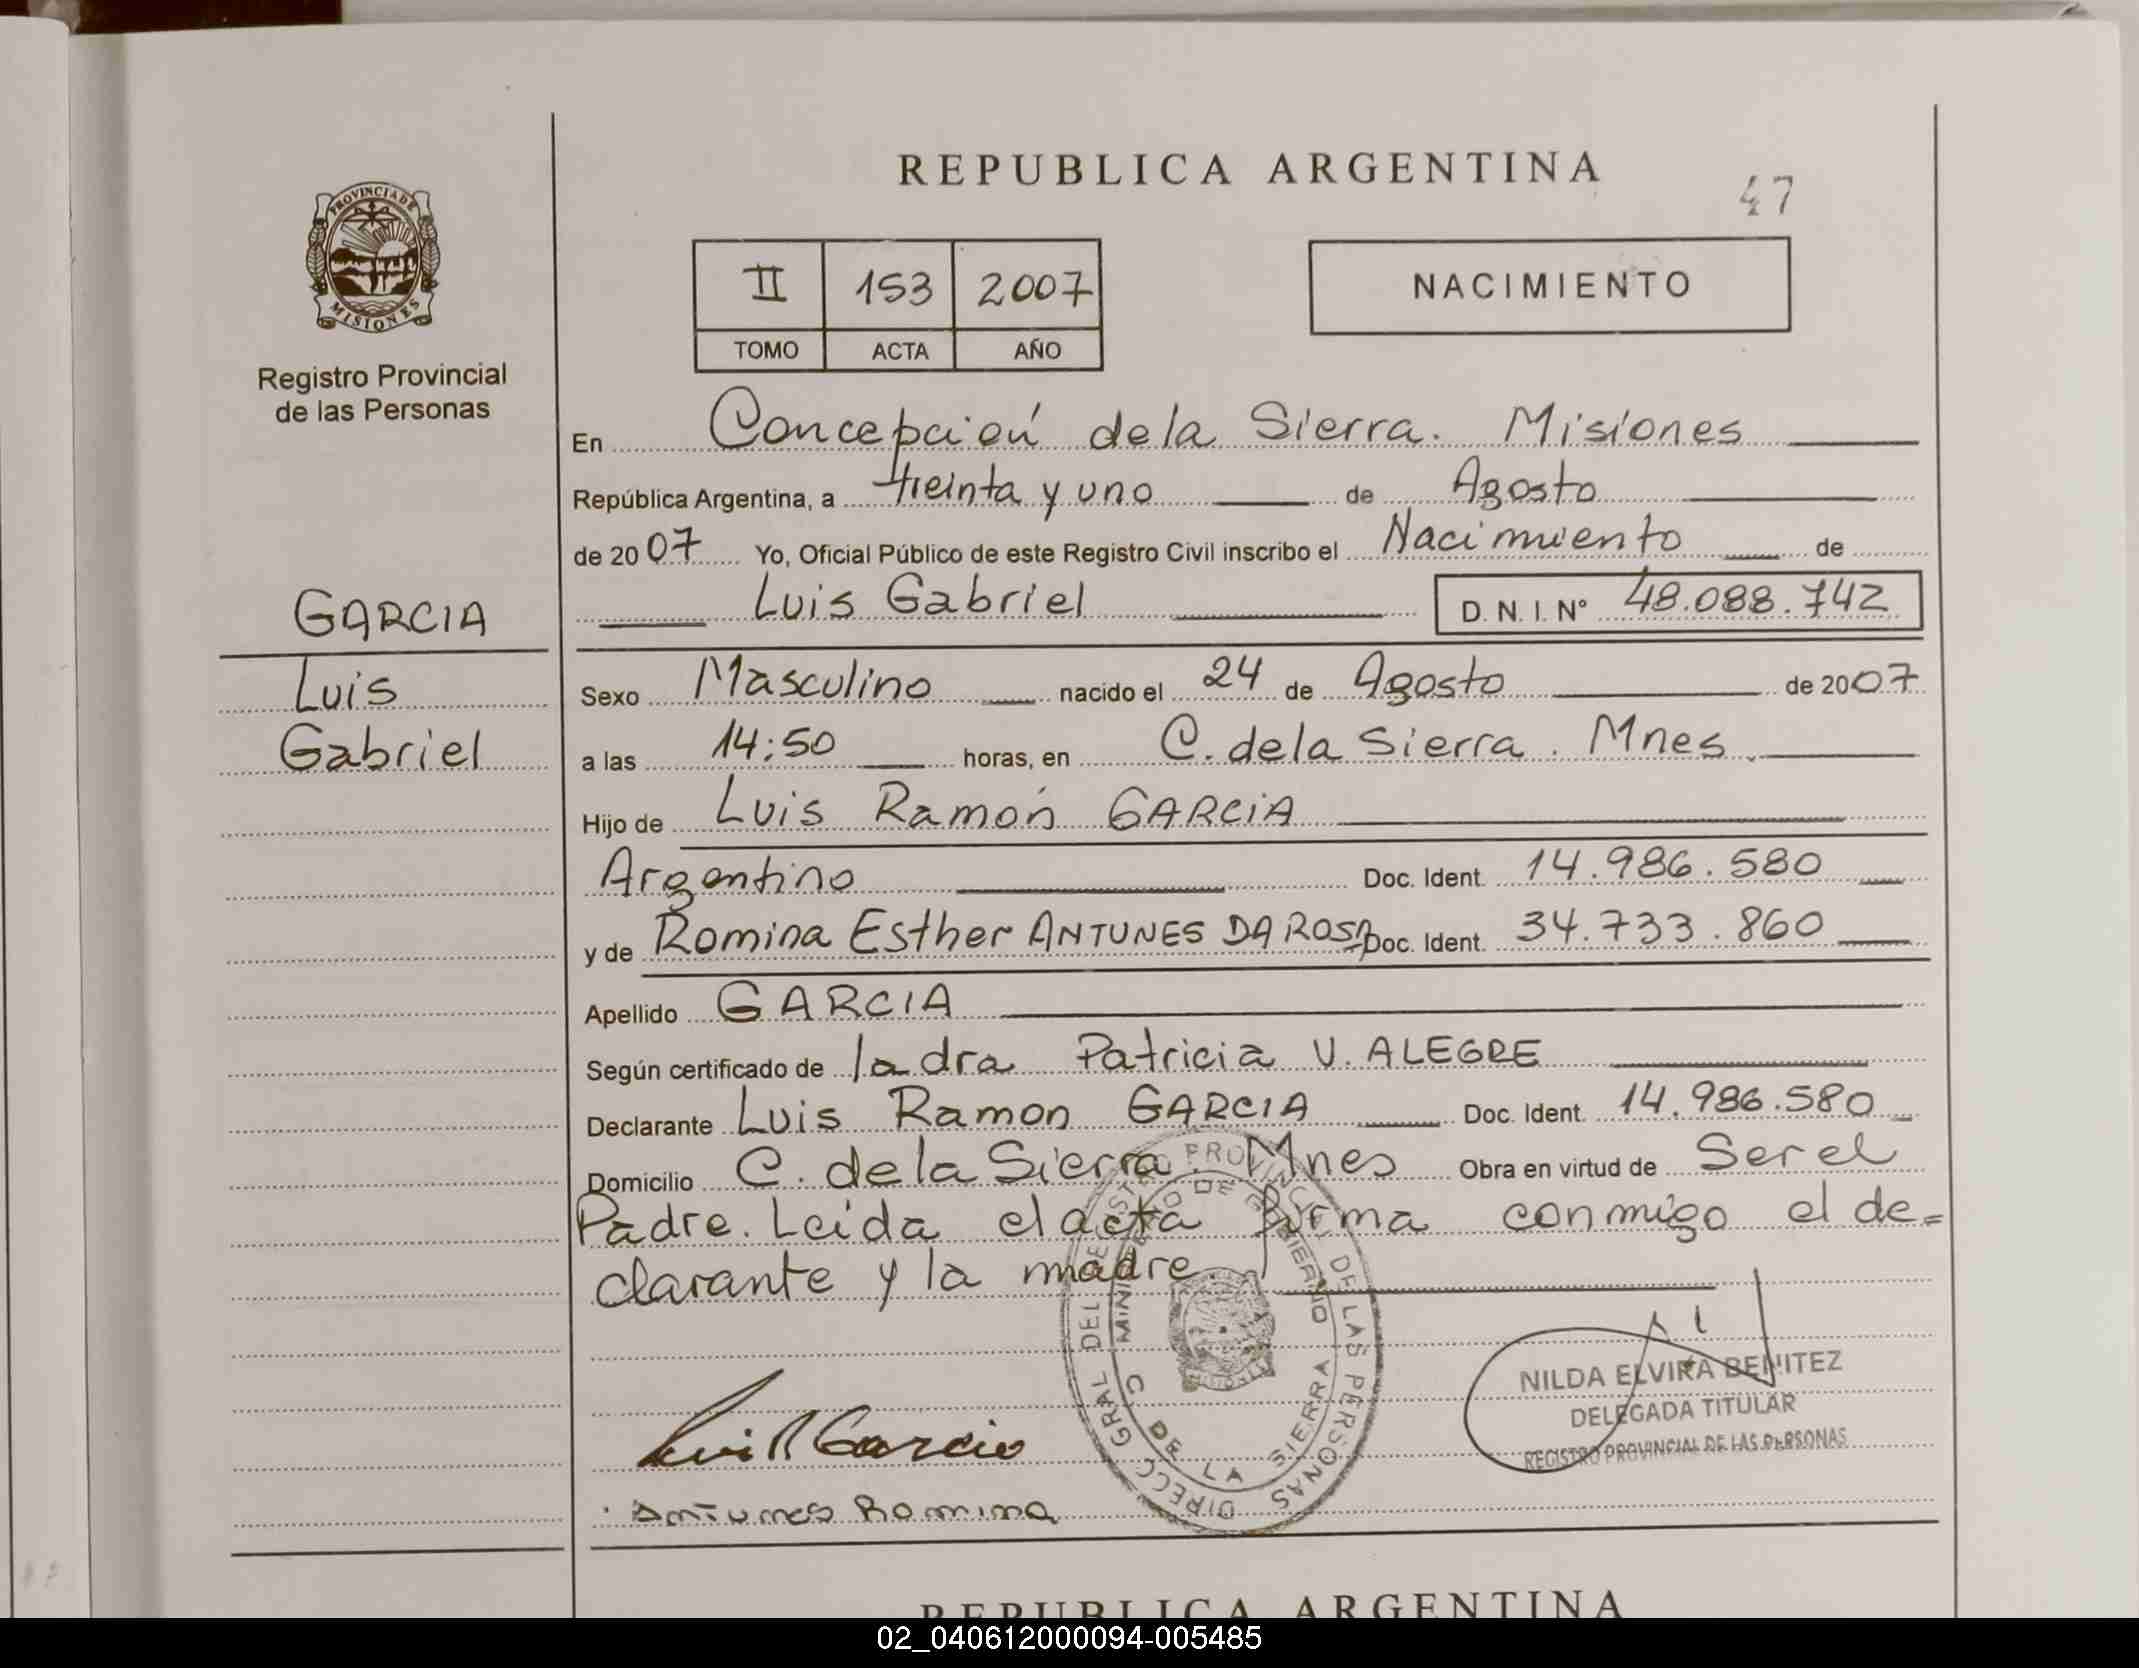 REPUBLICA ARGENTINA
47
PROVINCIA DE
MISIONES
Registro Provincial
de las Personas
II 153 2007
TOMO ACTA AÑO
NACIMIENTO
En Concepción de la Sierra. Misiones
República Argentina, a treinta y uno de Agosto
de 2007 Yo, Oficial Público de este Registro Civil inscribo el Nacimiento de
Luis Gabriel D. N. I. Nº 48.088.742
GARCIA
Luis
Gabriel
Sexo Masculino nacido el 24 de Agosto de 2007
a las 14:50 horas, en C. de la Sierra. Mnes
Hijo de Luis Ramón GARCIA
Argentino Doc. Ident. 14.986.580
y de Romina Esther ANTUNES DA ROSA Doc. Ident. 34.733.860
Apellido GARCIA
Según certificado de la dra Patricia V. ALEGRE
Declarante Luis Ramon GARCIA Doc. Ident. 14.986.580
Domicilio C. de la Sierra. Mnes Obra en virtud de Ser el
Padre. Leida el acta firma conmigo el de=
clarante y la madre.
DIRECC GRAL DEL REGISTRO PROVINCIAL DE LAS PERSONAS
MINISTERIO DE GOBIERNO
C DE LA SIERRA
MISIONES
NILDA ELVIRA BENITEZ
DELEGADA TITULAR
REGISTRO PROVINCIAL DE LAS PERSONAS
Luis R Garcia
Antunes Romina
REPUBLICA ARGENTINA
02_040612000094-005485